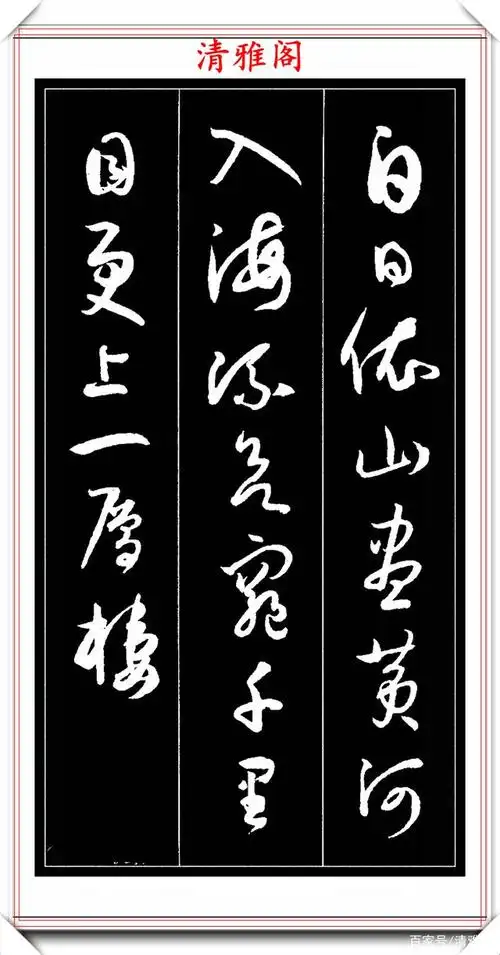 清雅阁
白日依山尽黄河
入海流欲窮千里
目更上一層楼
百家号/清雅